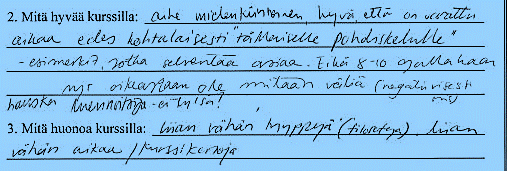 2. Mitä hyvää kurssilla: aihe mielenkiintoinen hyvä, että on varattu
aikaa edes kohtalaisesti "tällaiselle pohdiskelulle"
- esimerkit, jotka selventää asiaa. Eikä 8-10 ajallahaan
nyt oikeastaan ole mitään väliä (negatiivisesti
hauska luennoitsija - ei tylsä!
3. Mitä huonoa kurssilla: liian vähän hyppejä (tiloateja), liian
vähän aikaa / kurssikertoja